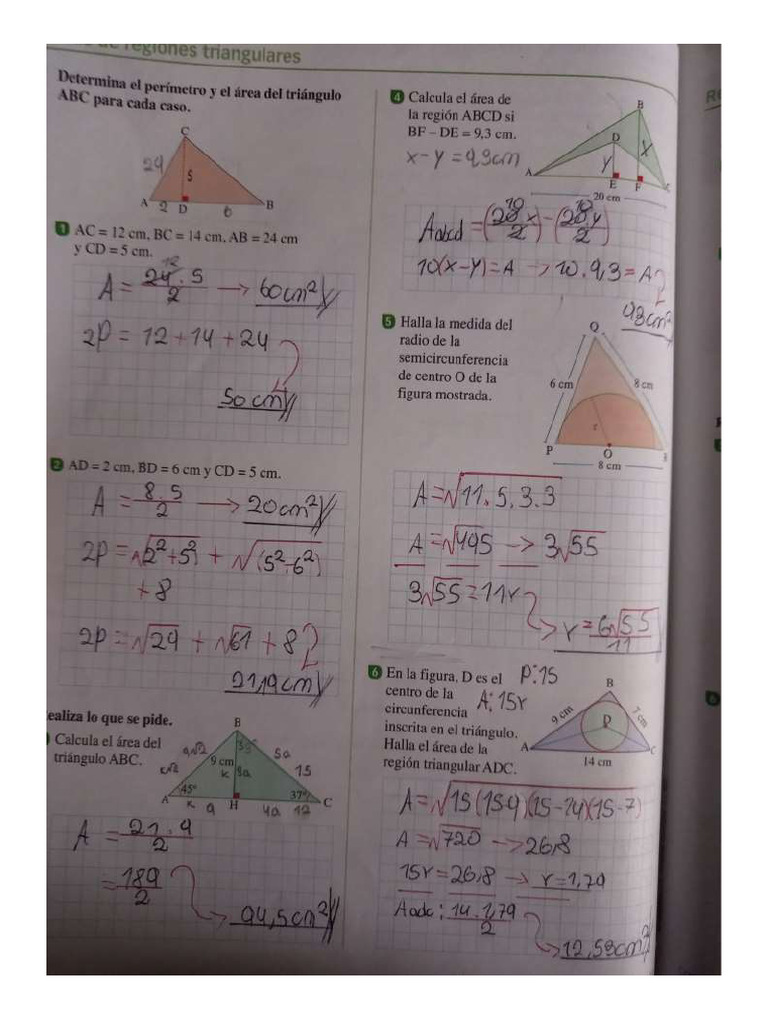 de regiones triangulares
Determina el perímetro y el área del triángulo
ABC para cada caso.
C
29
5
A 2 D 6 B
1 AC = 12 cm, BC = 14 cm, AB = 24 cm
y CD = 5 cm.
12
A = 24 . 5 / 2 → 60cm²
2P = 12 + 14 + 24
50 cm
2 AD = 2 cm, BD = 6 cm y CD = 5 cm.
A = 8.5 / 2 → 20cm²
2P = √2²+5² + √(5²-6²)
+ 8
2P = √29 + √61 + 8
21,19cm
ealiza lo que se pide.
Calcula el área del
triángulo ABC.
B
9√2
53°
5a
K√2
9 cm
K
3a
15
45°
37°
A K 9 H 4a 12 C
A = 21.9 / 2
= 189 / 2
94,5cm²
4 Calcula el área de
la región ABCD si
BF – DE = 9,3 cm.
x - y = 9,3cm
B
D
x
y
A
E F C
20 cm
10 10
Aabcd = (20x / 2) - (20y / 2)
10(x-y) = A → 10.9,3 = A
93cm²
5 Halla la medida del
radio de la
semicircunferencia
de centro O de la
figura mostrada.
Q
6 cm
8 cm
r
P O R
8 cm
A = √11.5.3.3
A = √495 → 3√55
3√55 = 11r
r = 6√55 / 11
6 En la figura, D es el
centro de la
circunferencia
inscrita en el triángulo.
Halla el área de la
región triangular ADC.
P: 15
A: 15r
B
9 cm
7 cm
D
A C
14 cm
A = √15(15-9)(15-14)(15-7)
A = √720 → 26,8
15r = 26,8 → r = 1,79
Aadc: 14.1,79 / 2
12,53cm²